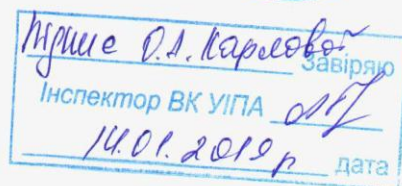 Підпис О.А. Карлової
Завіряю
Інспектор ВК УІПА
14.01.2019 р дата